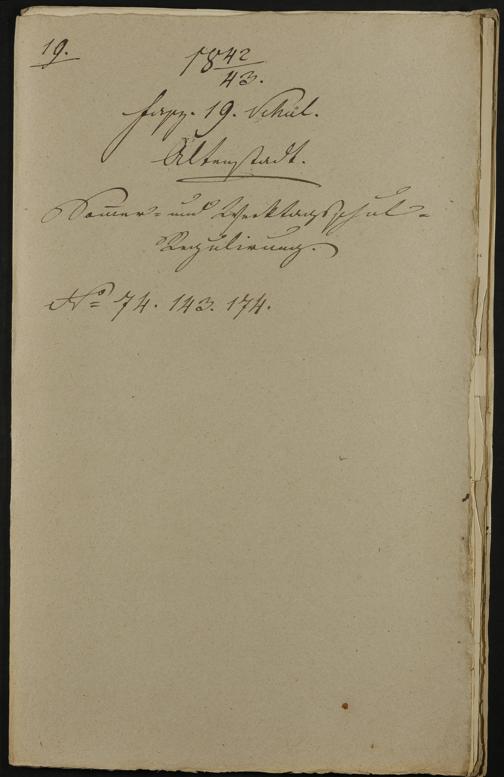 19.
1842/43.
Fasz. 19. Schul.
Altenstadt.
Sommer- und Werktagsschul-
Regulirung.
No 74. 143. 174.